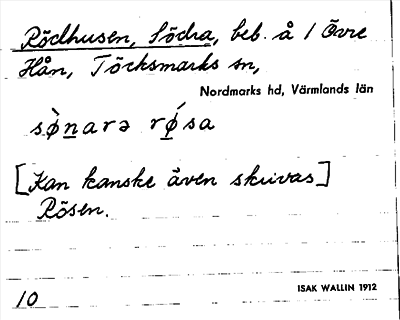 Rödhusen, Södra, beb. å 1 Övre
Hån, Töcksmarks sn,
Nordmarks hd, Värmlands län
sø̀narə rǿsa
[Kan kanske även skrivas]
Rösen.
10
ISAK WALLIN 1912